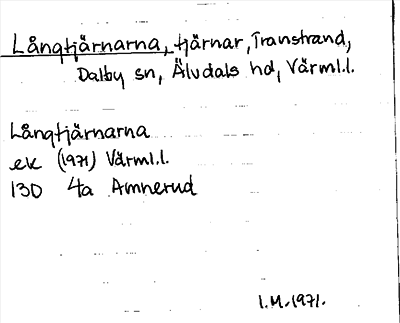 Långtjärnarna, tjärnar, Transtrand,
Dalby sn, Älvdals hd, Värml.l.
Långtjärnarna
ek (1971) Värml.l.
130 4a Amnerud
I.M. 1971.